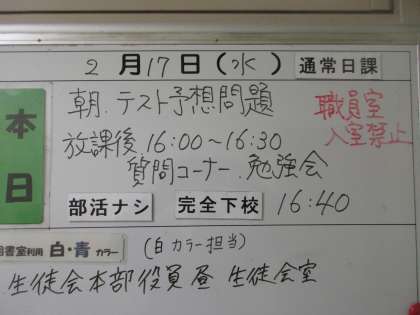 2月17日(水) 通常日課
本日
朝.テスト予想問題
職員室
入室禁止
放課後16:00~16:30
質問コーナー.勉強会
部活ナシ 完全下校 16:40
書室利用 白・青カラー (白カラー担当)
生徒会本部役員昼 生徒会室